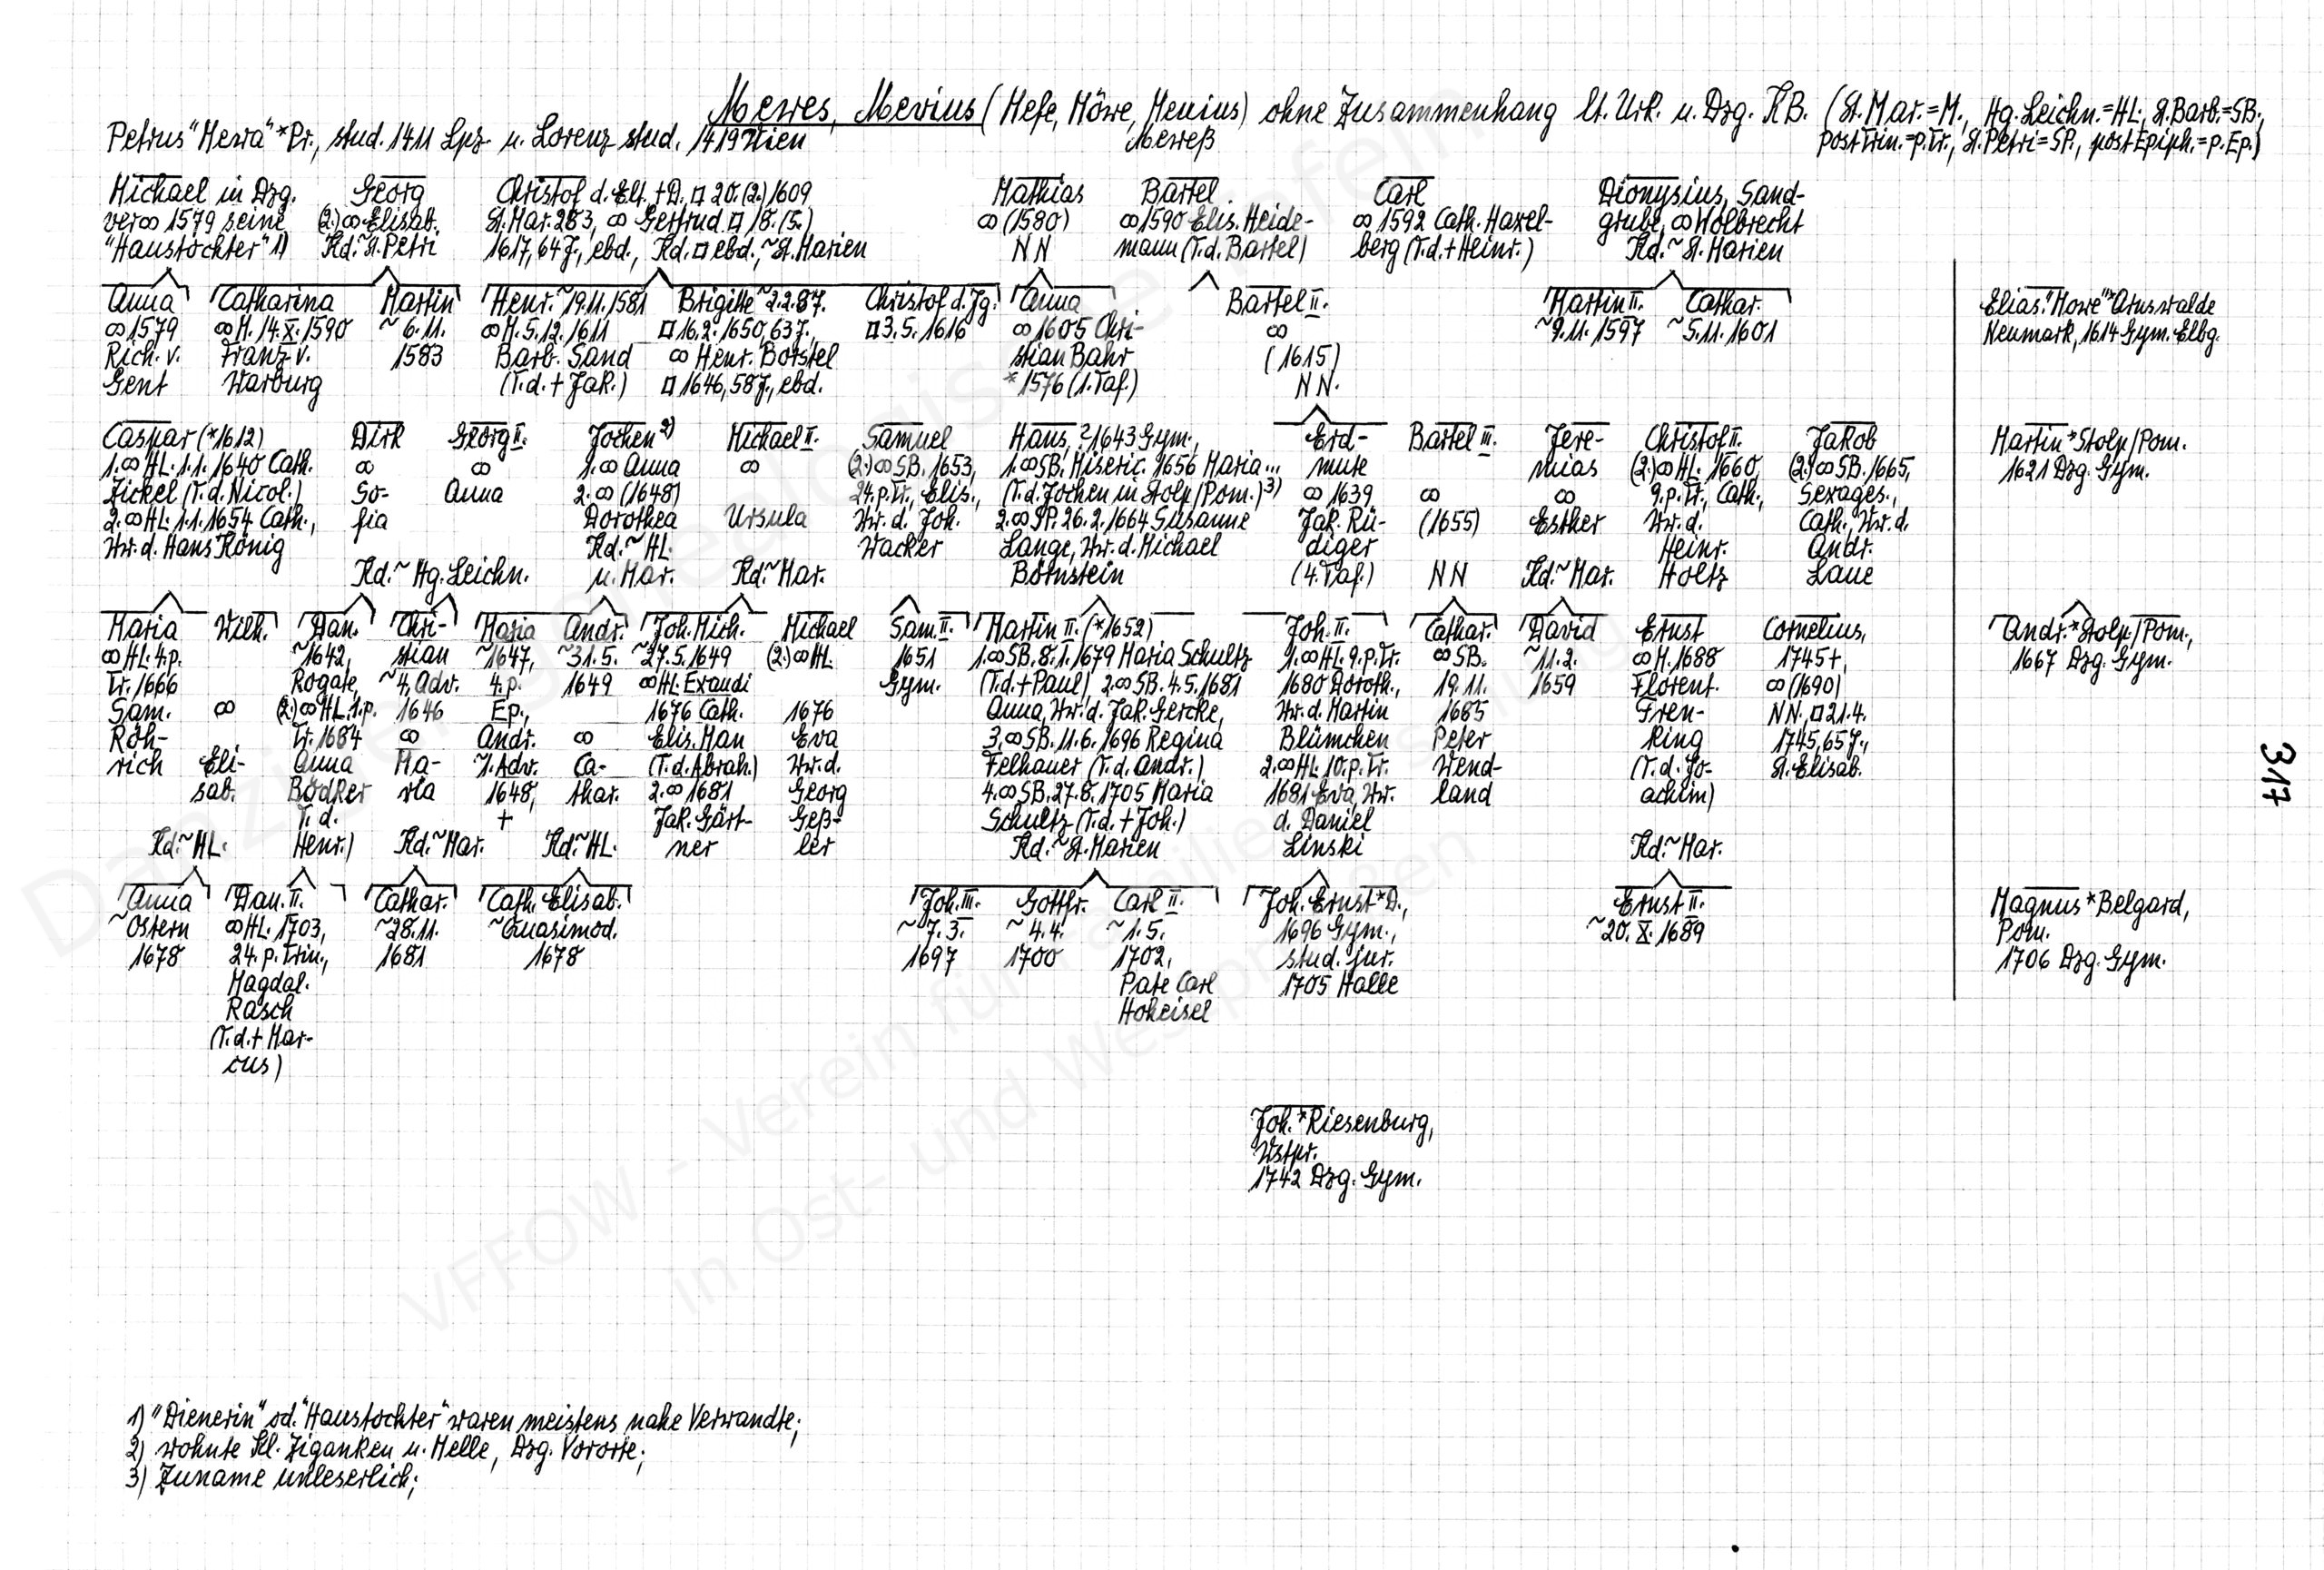 Mewes, Mevius (Mefe, Möwe, Menius) ohne Zusammenhang lt. Urk. u. Dzg. KB. (St. Mar.=M., Hg. Leichn.=HL., St. Barb.=SB.,
Meweß
post Trin.=p.Tr., St. Petri=SP., post Epiph.=p.Ep.)
Petrus "Mewa" *Pr., stud. 1411 Lpz. u. Lorenz stud. 1419 Wien
Michael in Dzg.
ver∞ 1579 seine
"Haustöchter" 1)
Georg
(2.) ∞ Elisab.
Kd. ~ St. Petri
Christof d. Elt. + D. □ 20.(2.) 1609
St. Mar. 283, ∞ Gertrud □ 18.(5.)
1617, 64 J., ebd., Kd. □ ebd., ~ St. Marien
Mathias
∞ (1580)
NN
Bartel
∞ 1590 Elis. Heide-
mann (T.d. Bartel)
Carl
∞ 1592 Cath. Haxel-
berg (T.d. + Heinr.)
Dionysius, Sand-
grube, ∞ Holbrecht
Kd. ~ St. Marien
Anna
∞ 1579
Rich. v.
Gent
Catharina
∞ M. 14.X. 1590
Franz v.
Warburg
Martin
~ 6.11.
1583
Henr. ~ 19.11.1581
∞ M. 5.12.1611
Barb. Sand
(T.d. + Jak.)
Brigitte ~ 2.2.87.
□ 16.2.1650, 63 J.,
∞ Henr. Borstel
□ 1646, 58 J., ebd.
Christof d. Jg.
□ 3.5.1616
Anna
∞ 1605 Chri-
stian Bahr
* 1576 (1. Taf.)
Bartel II.
∞
(1615)
NN.
Martin II.
~ 9.11.1597
Cathar.
~ 5.11.1601
Elias "Mowe" * Arnswalde
Neumark, 1614 Gym. Elbg.
Caspar (*1612)
1. ∞ HL. 1.1.1640 Cath.
Zickel (T.d. Nicol.)
2. ∞ HL. 1.1.1654 Cath.,
Ww. d. Hans König
Dirk
∞
So-
fia
Georg II.
∞
Anna
Kd. ~ Hg. Leichn.
Jochen 2)
1. ∞ Anna
2. ∞ (1648)
Dorothea
Kd. ~ HL.
u. Mar.
Michael II.
∞
Ursula
Kd. ~ Mar.
Samuel
(2.) ∞ SB. 1653,
24.p.Tr., Elis.,
Ww. d. Joh.
Wacker
Hans, ? 1643 Gym.,
1. ∞ SB. Miseric. 1656 Maria ...
(T.d. Jochen in Stolp/Pom.) 3)
2. ∞ SP. 26.2.1664 Susanne
Lange, Ww. d. Michael
Börnstein
Erd-
mute
∞ 1639
Jak. Rü-
diger
(4. Taf.)
Bartel III.
∞
(1655)
NN
Jere-
mias
∞
Esther
Kd. ~ Mar.
Christof II.
(2.) ∞ HL. 1660,
9.p.Tr., Cath.,
Ww. d.
Heinr.
Holtz
Jakob
(2.) ∞ SB. 1665,
Sexages.,
Cath., Ww. d.
Andr.
Laue
Martin * Stolp/Pom.
1621 Dzg. Gym.
Maria
∞ HL. 4.p.
Tr. 1666
Sam.
Röh-
rich
Wilh.
∞
Eli-
sab.
Kd. ~ HL.
Dan.
~ 1642,
Rogate,
(2.) ∞ HL. 1.p.
Tr. 1684
Anna
Bödker
T. d.
Henr.)
Chri-
stian
~ 4. Adv.
1646
∞
Ma-
ria
Kd. ~ Mar.
Maria
~ 1647,
4.p.
Ep.,
Andr.
1. Adv.
1648,
+
Andr.
~ 31.5.
1649
∞
Ca-
thar.
Kd. ~ HL.
Joh. Mich.
~ 27.5.1649
∞ HL. Exaudi
1676 Cath.
Elis. Man
(T.d. Abrah.)
2. ∞ 1681
Jak. Gärt-
ner
Michael
(2.) ∞ HL.
1676
Eva
Ww. d.
Georg
Geß-
ler
Sam. II.
1651
Gym.
Martin II. (*1652)
1. ∞ SB. 8.1.1679 Maria Schultz
(T.d. + Paul) 2. ∞ SB. 4.5.1681
Anna, Ww. d. Jak. Gercke,
3. ∞ SB. 11.6.1696 Regina
Felhauer (T.d. Andr.)
4. ∞ SB. 27.8.1705 Maria
Schultz (T.d. + Joh.)
Kd. ~ St. Marien
Joh. II.
1. ∞ HL. 9.p.Tr.
1680 Doroth.,
Ww. d. Martin
Blümchen
2. ∞ HL. 10.p.Tr.
1681 Eva, Ww.
d. Daniel
Linski
Cathar.
∞ SB.
19.11.
1685
Peter
Wend-
land
David
~ 11.2.
1659
Ernst
∞ M. 1688
Florent.
Fren-
king
(T.d. Jo-
achim)
Kd. ~ Mar.
Cornelius,
1745 +,
∞ (1690)
NN., □ 21.4.
1745, 65 J.,
St. Elisab.
Andr. * Stolp/Pom.,
1667 Dzg. Gym.
317
Anna
~ Ostern
1678
Dan. II.
∞ HL. 1703,
24.p. Trin.,
Magdal.
Rasch
(T.d. + Mar-
cus)
Cathar.
~ 28.11.
1681
Cath. Elisab.
~ Quasimod.
1678
Joh. III.
~ 7.3.
1697
Gottfr.
~ 4.4.
1700
Carl II.
~ 1.5.
1702,
Pate Carl
Hoheisel
Joh. Ernst * D.,
1696 Gym.,
stud. jur.
1705 Halle
Ernst II.
~ 20.X.1689
Magnus * Belgard,
Pom.
1706 Dzg. Gym.
Joh. * Riesenburg,
Wstpr.
1742 Dzg. Gym.
1) "Dienerin" od. "Haustochter" waren meistens nahe Verwandte;
2) wohnte Kl. Ziganken u. Nelle, Dzg. Vororte;
3) Zuname unleserlich;
VFFOW - Verein für Familienforschung
in Ost- und Westpreußen